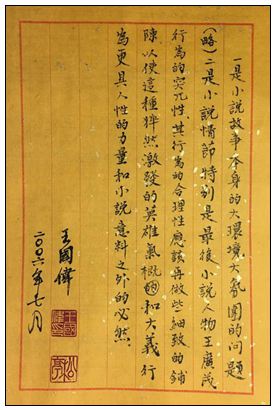 一是小說故事本身的大環境大氛圍的問題
(略)二是小說情節特別是最後小說人物王廣茂
行為的突兀性其行為的合理性應該再做些細致的鋪
陳以使這種猝然激發的英雄氣概和大義行
為更具人性的力量和小說意料之外的必然.
王國偉
二〇〇六年七月